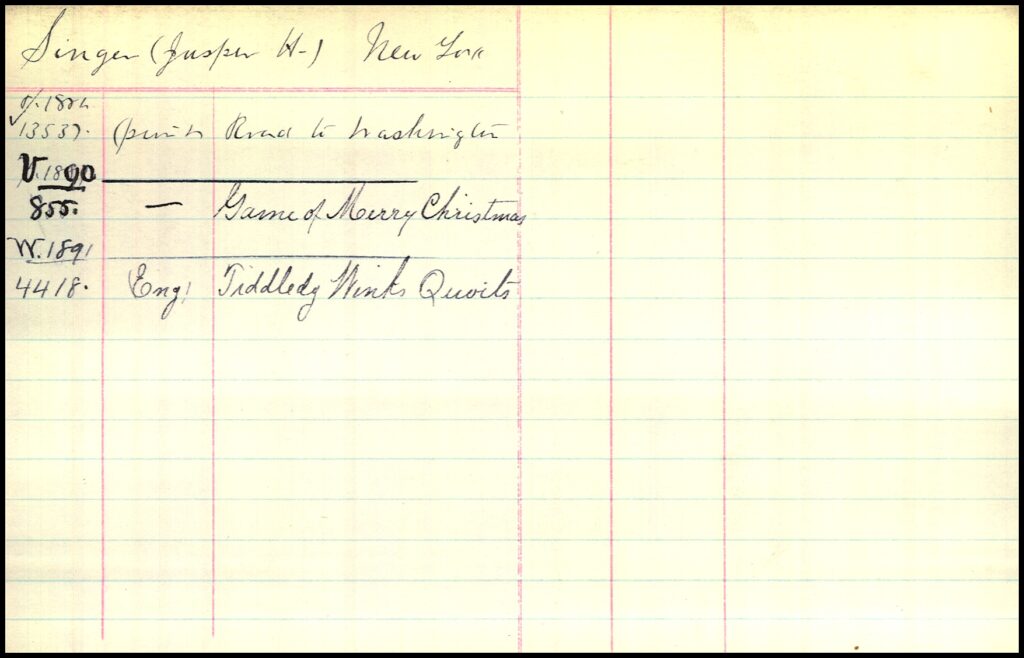 Singer (Jasper H-) New York
13537. (print Road to Washington
V. 1890
855. — Game of Merry Christmas
W. 1891
4418. Eng! Tiddledy Winks Quoits